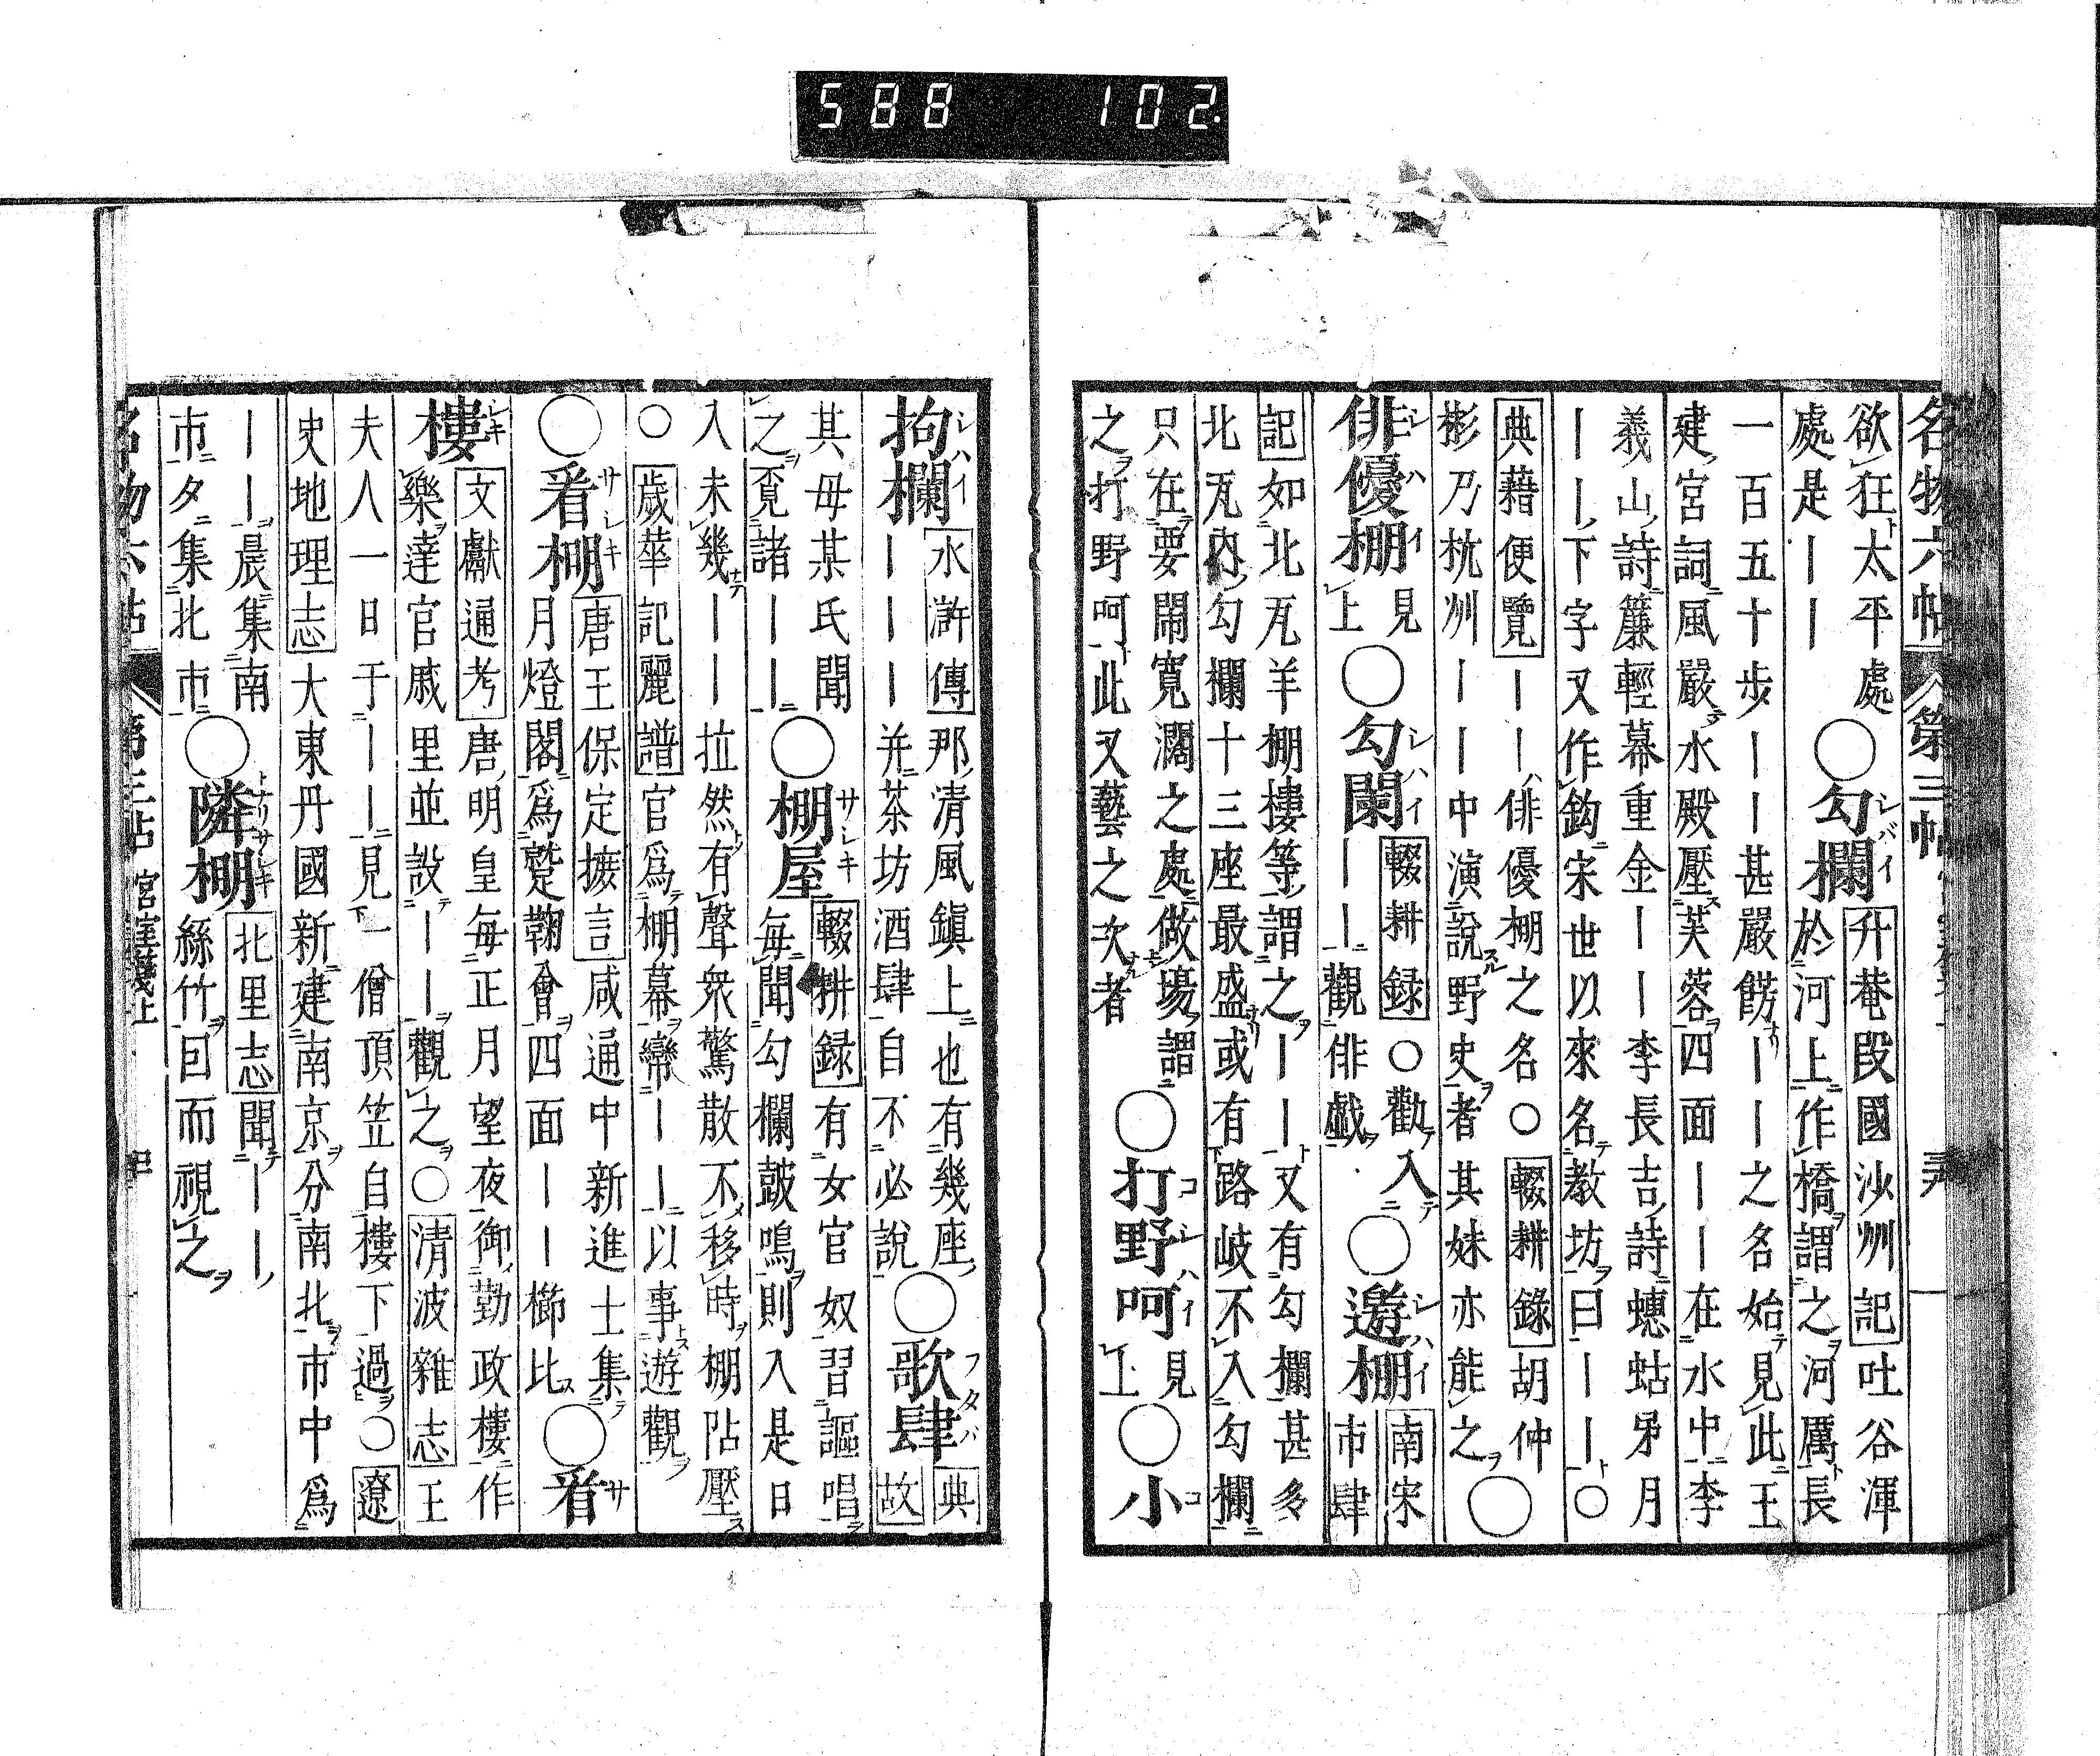 名物六帖 第三帖
欲狂太平處
處是｜｜
○勾欄
升菴段國沙州記吐谷渾
於河上作橋謂之河厲長
一百五十步｜｜甚嚴餝｜｜之名始見此王
建宮詞風嚴水殿壓芙蓉四面｜｜在水中李
義山詩簾輕幕重金｜｜李長吉詩蟪蛄弔月
｜｜下字又作鈎宋世以來名教坊曰｜｜○
典藉便覽｜｜俳優棚之名○輟耕錄胡仲
彬乃杭州｜｜中演説野史者其妹亦能之
○俳優棚
見
上
○勾闌
輟耕録○勸入
｜｜觀俳戯
○邀棚
南宋
市肆
記如北瓦羊棚樓等謂之｜｜又有勾欄甚多
北瓦内勾欄十三座最盛或有路岐不入勾欄
只在要閙寛濶之處做塲謂
之打野呵此又藝之次者
○打野呵
見
上
○小
拘欄
水滸傳那清風鎮上也有幾座
｜｜｜｜并茶坊酒肆自不必説
○歌肆
典
故
其母某氏聞
之覓諸｜｜
○棚屋
輟耕録有女官奴習謳唱
毎聞勾欄鼓鳴則入是日
入未幾｜｜拉然有聲衆驚散不移時棚阽壓
○歳華記麗譜官爲棚幕巒｜｜以事遊觀
○看棚
唐王保定摭言咸通中新進士集
月燈閣爲蹵鞠會四面｜｜櫛比
○看
樓
文獻通考唐明皇毎正月望夜御勤政樓作
樂達官戚里並設｜｜觀之○清波雜志王
夫人一日于｜｜見一僧頂笠自樓下過○遼
史地理志大東丹國新建南京分南北市中爲
｜｜晨集南
市夕集北市
○隣棚
北里志聞｜｜
絲竹囘而視之
名物六帖 第三帖 宮室箋上